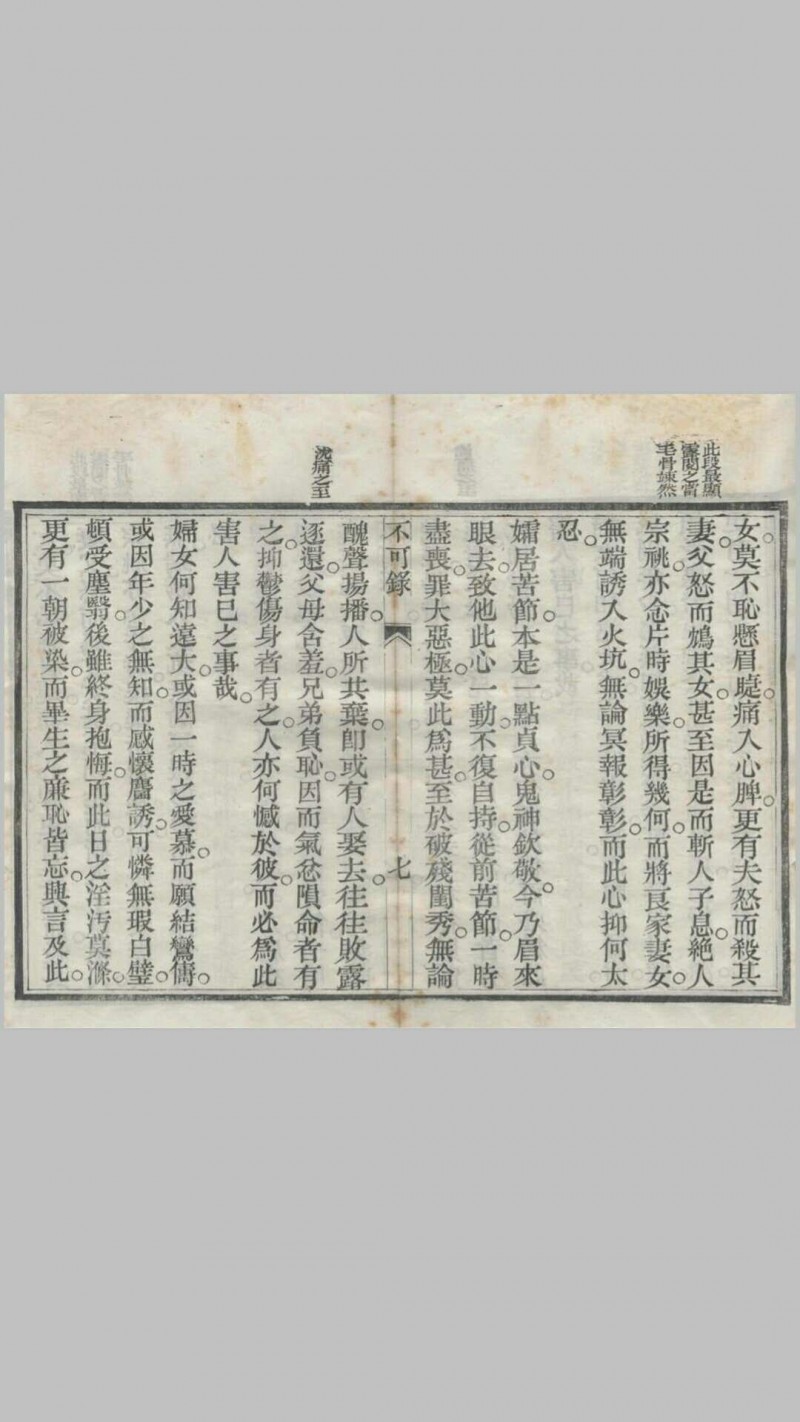 此段最顯
露閱之當
毛骨竦然
女莫不恥懸眉睫。痛入心脾。更有夫怒而殺其
妻。父怒而鴆其女。甚至因是而斬人子息。絕人
宗祧。亦念片時娛樂。所得幾何。而將良家妻女。
無端誘入火坑。無論冥報彰彰。而此心抑何太
忍。
孀居苦節。本是一點貞心。鬼神欽敬。今乃眉來
眼去。致他此心一動。不復自持。從前苦節。一時
盡喪。罪大惡極。莫此為甚。至於破殘閨秀。無論
不可錄 七
沈痛之至
醜聲揚播。人所共棄。卽或有人娶去。往往敗露
逐還。父母含羞。兄弟負恥。因而氣忿隕命者有
之。抑鬱傷身者有之。人亦何憾於彼。而必為此
害人害已之事哉。
婦女何知遠大。或因一時之愛慕。而願結鸞儔。
或因年少之無知。而感懷麕誘。可憐無瑕白璧。
頓受塵翳。後雖終身抱悔。而此日之淫汚莫滌。
更有一朝被染。而畢生之廉恥皆忘。興言及此。